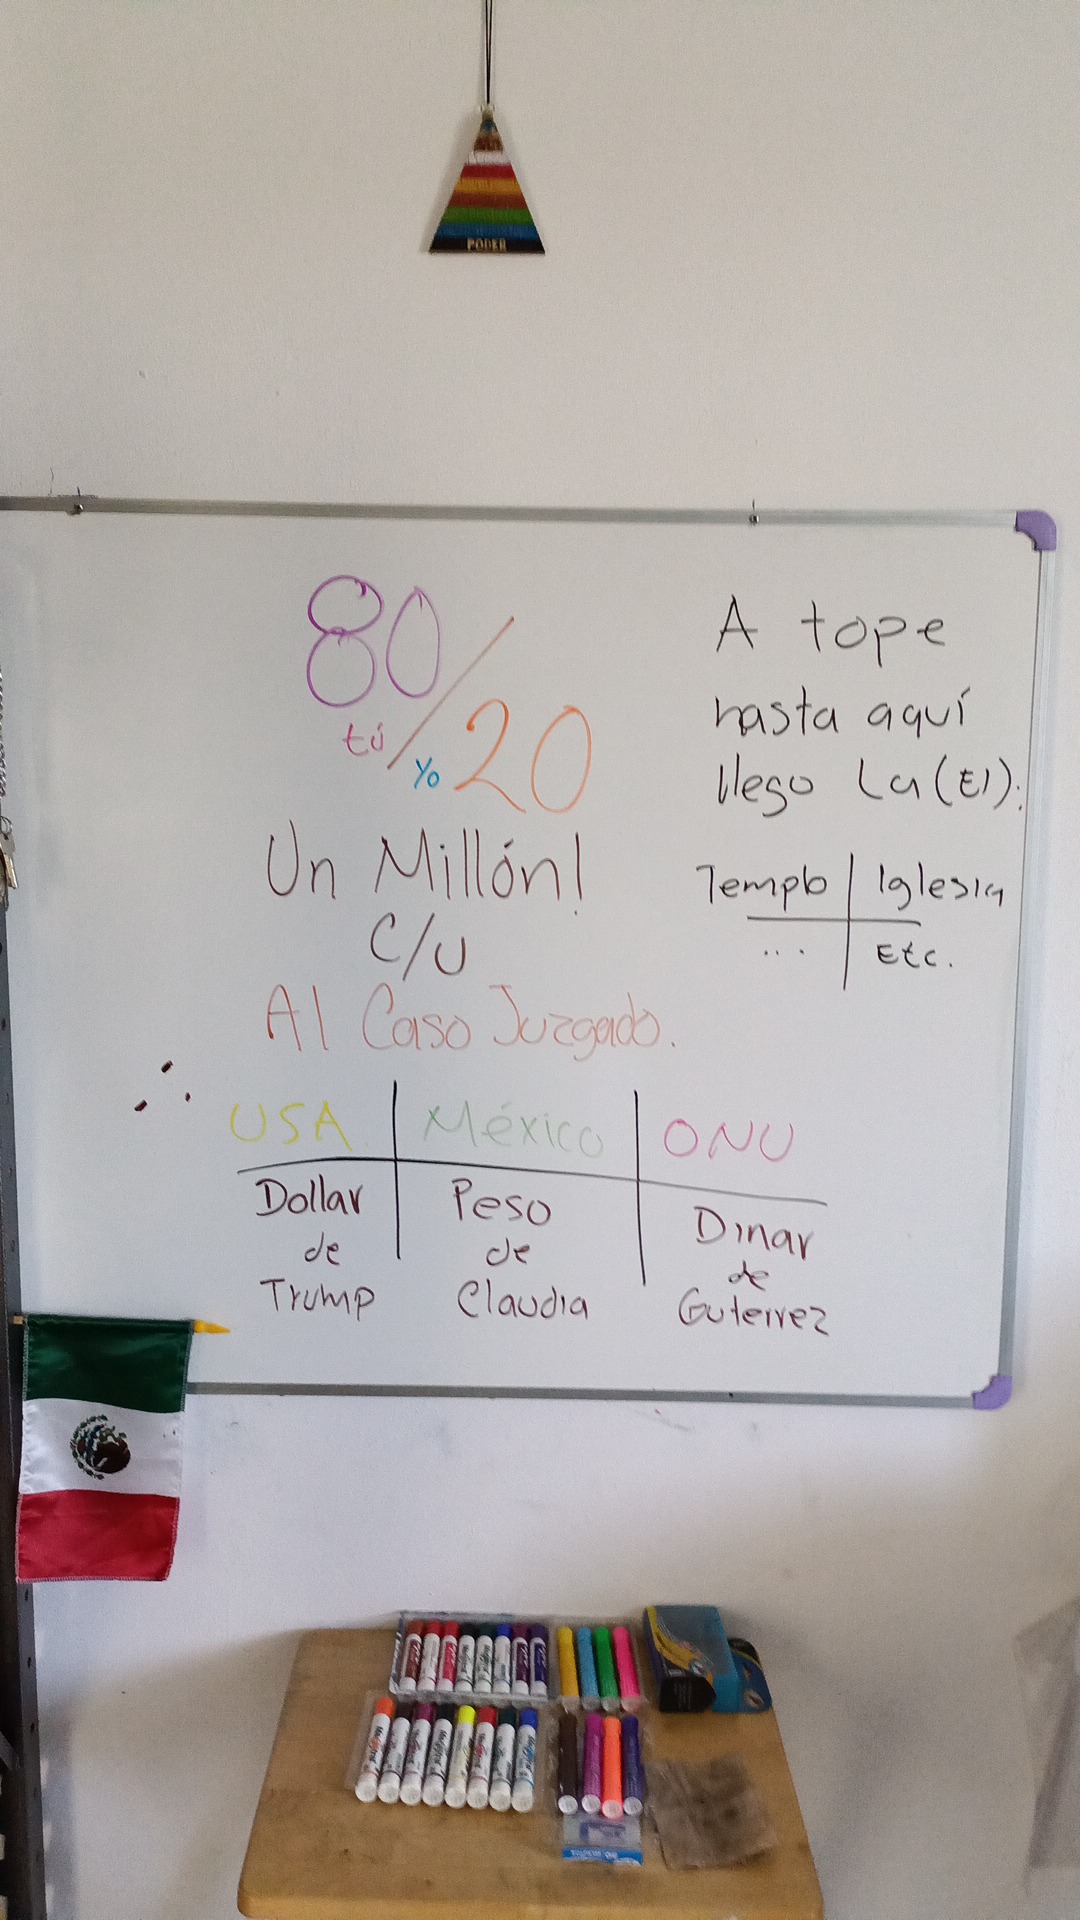 PODER
80/20
tú yo
Un Millón!
C/U
Al Caso Juzgado.
A tope
hasta aquí
llego La(El):
Templo | Iglesia
... | Etc.
∴ USA | México | ONU
Dollar | Peso | Dinar
de | de | de
Trump | Claudia | Guterrez